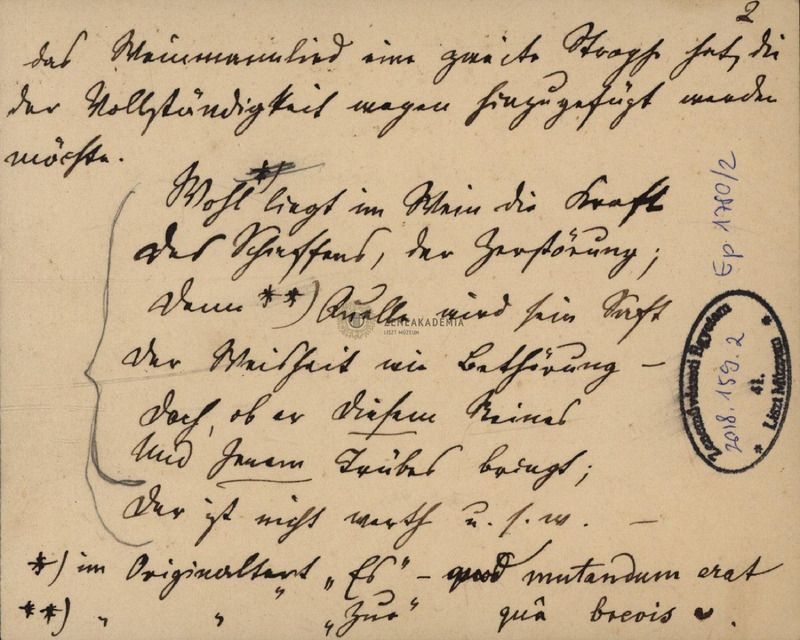 2
das Weinmannlied eine zweite Strophe hat, die
der Vollständigkeit wegen hinzugefügt werden
möchte.
Wohl *) liegt im Wein die Kraft
Des Schaffens, der Zerstörung;
Denn **) Quelle wird sein Saft
ZENEAKADÉMIA
LISZT MÚZEUM
Der Weisheit wie Bethörung –
Doch, ob er Diesem Reines
Und Jenem Trübes bringt;
Der ist nicht werth u. s. w. –
*) im Originaltext „Es" – quod mutandum erat
**) " " „Zur" quâ brevis ◡.
Ep 1780/2
Zeneművészeti Egyetem
2018.159.2
41.
* Liszt Múzeum *